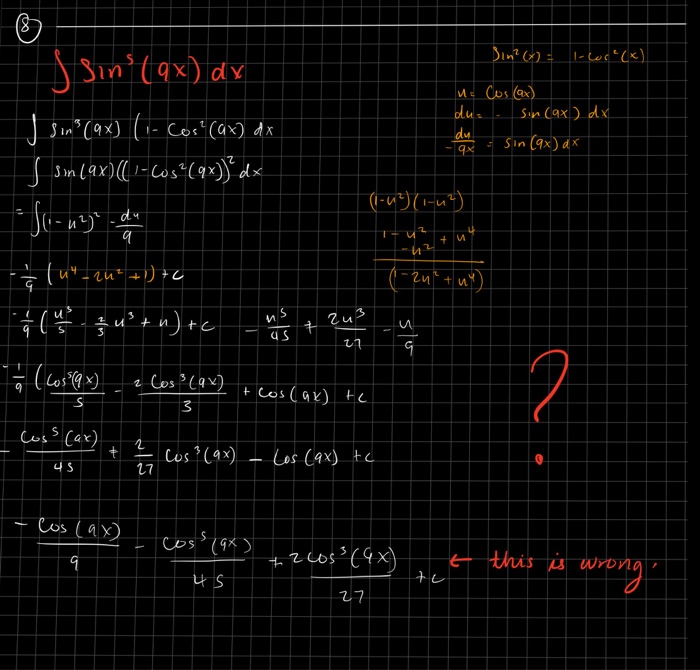 ⑧
∫ Sin⁵(9x) dx
Sin²(x) = 1-Cos²(x)
u = Cos(9x)
du = - sin(9x) dx
-du/9x = sin(9x) dx
∫ Sin³(9x) (1 - Cos²(9x) dx
∫ Sin(9x)((1-Cos²(9x))² dx
= ∫(1-u²)² - du/9
(1-u²)(1-u²)
1 - u²
-u² + u⁴
(1-2u²+u⁴)
-1/9 (u⁴ - 2u² + 1) + c
-1/9 (u⁵/5 - 2/3 u³ + u) + c
- u⁵/45 + 2u³/27 - u/9
-1/9 (Cos⁵(9x)/5 - 2 Cos³(9x)/3 + Cos(9x) + c
- Cos⁵(9x)/45 + 2/27 Cos³(9x) - Cos(9x) + c
?
- Cos(9x)/9 - Cos⁵(9x)/45 + 2 Cos³(9x)/27 + c ← this is wrong.